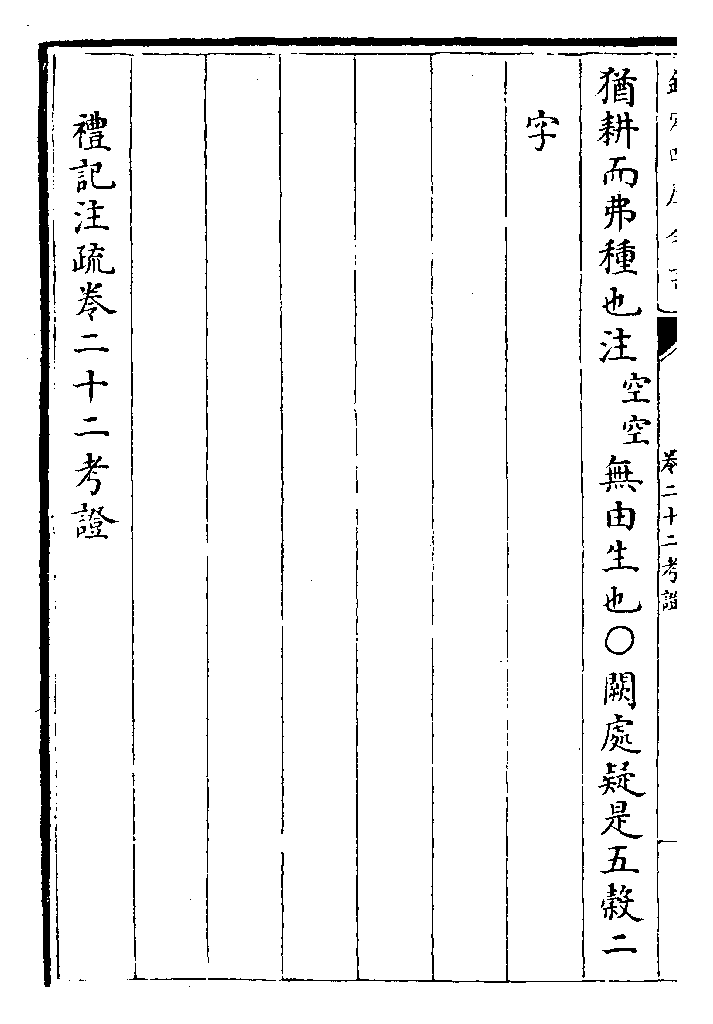 猶耕而弗種也注空空無由生也○闕處疑是五穀二
字
禮記注疏卷二十二考證
卷二十二考證